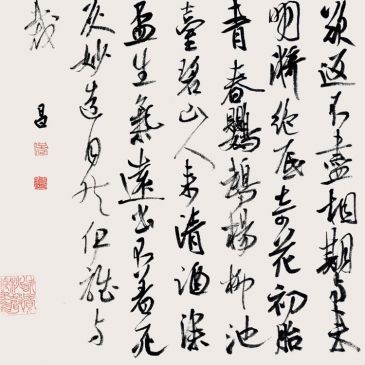 欲返不盡相期與來
明漪絕底奇花初胎
青春鸚鵡楊柳池
臺碧山人來清酒深
盃生氣遠出不著死
灰妙造自然伊誰與
裁
昌